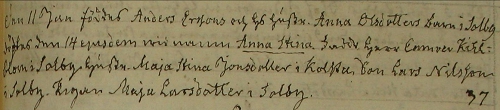 Den 11 Jan föddes Anders Erssons och Hs Hustr. Anna Olsdotters barn i Solby
döptes den 14 ejusdem med namn Anna Stina Fadd. Herr
blom i Solby, Hustr. Maja Stina Jonsdotter i Drän Lars Nilsson
i Solby. Pigan Maja Larsdotter i Solby. 37